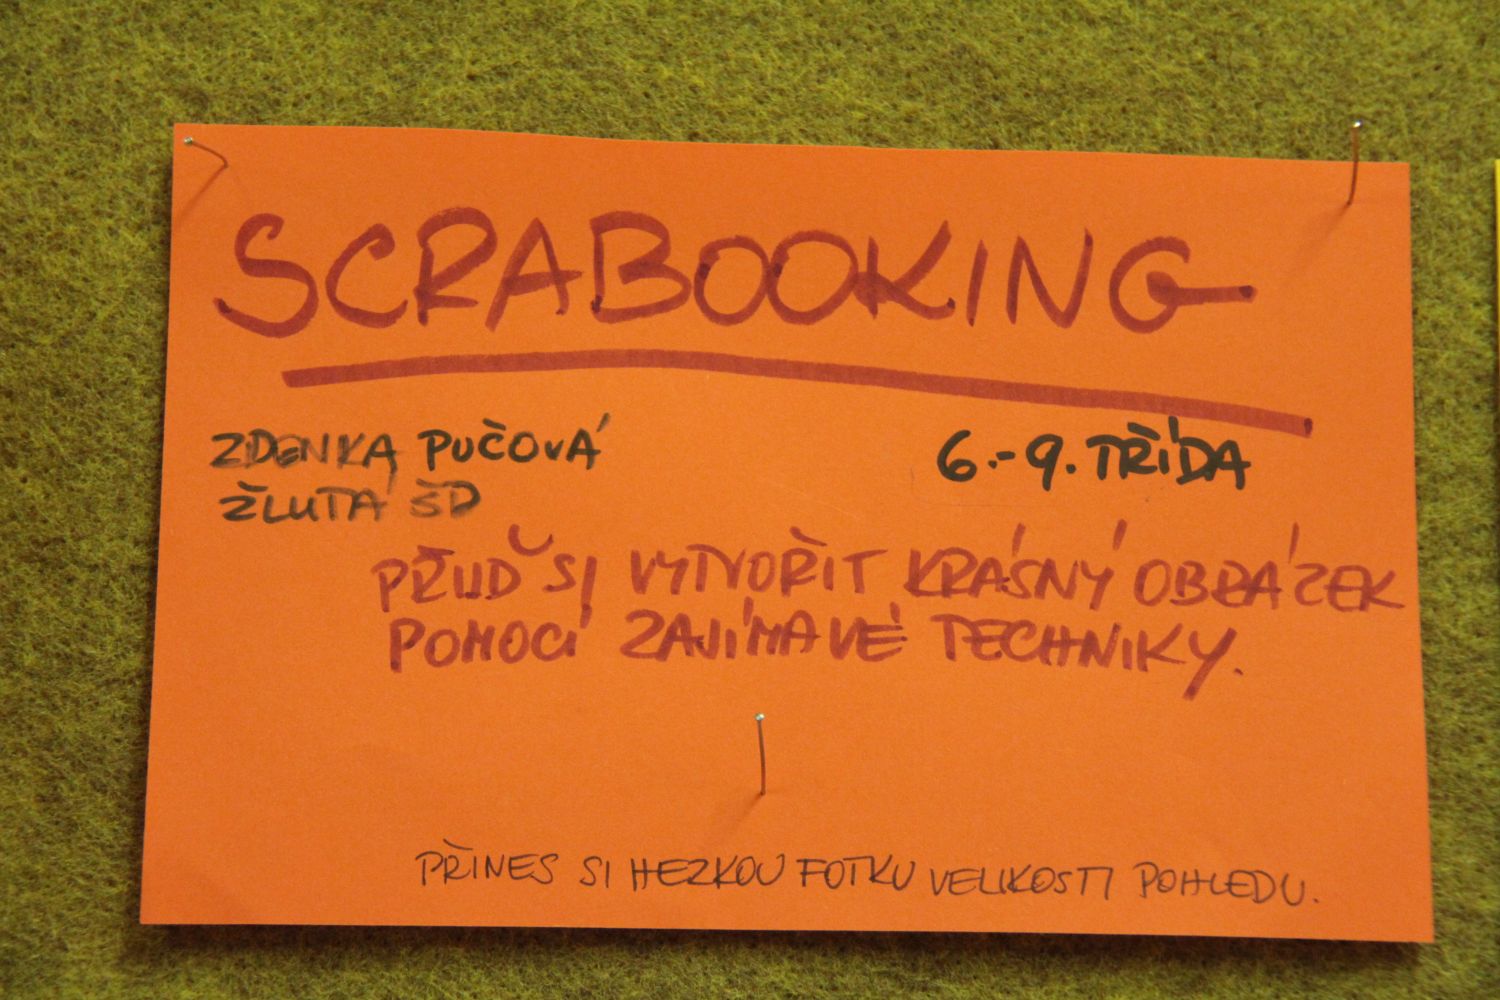 SCRABOOKING
ZDENKA PUČOVÁ
6.-9. TŘÍDA
ŽLUTÁ ŠD
PŘIJĎ SI VYTVOŘIT KRÁSNÝ OBRÁZEK
POMOCÍ ZAJÍMAVÉ TECHNIKY.
PŘINES SI HEZKOU FOTKU VELIKOSTI POHLEDU.